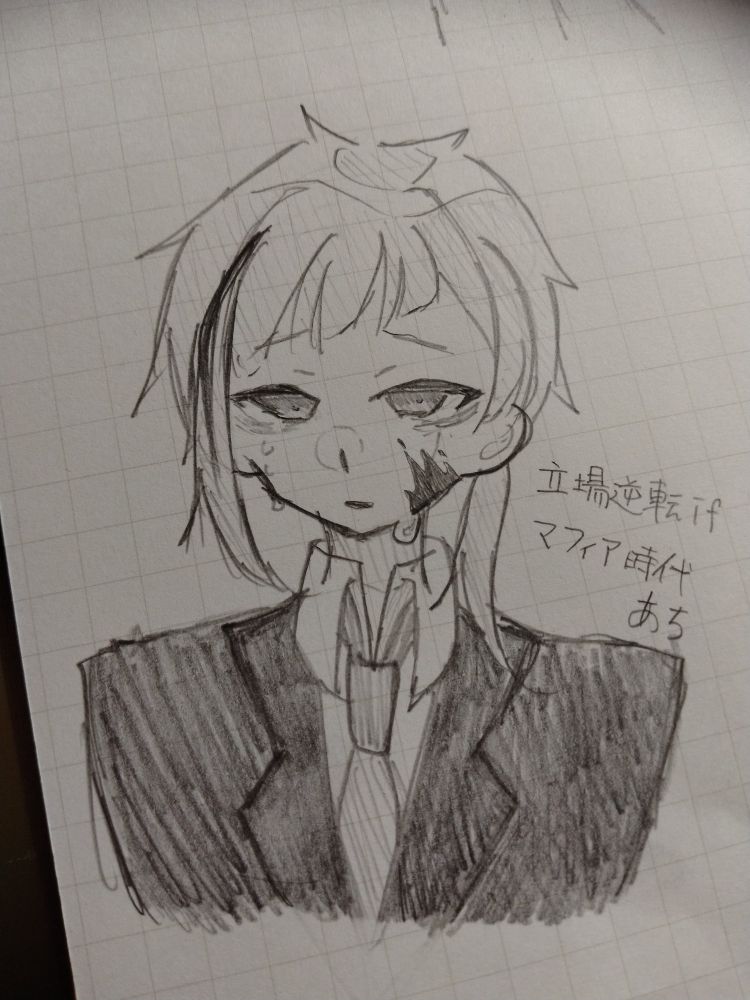 立場逆転if
マフィア時代
あち